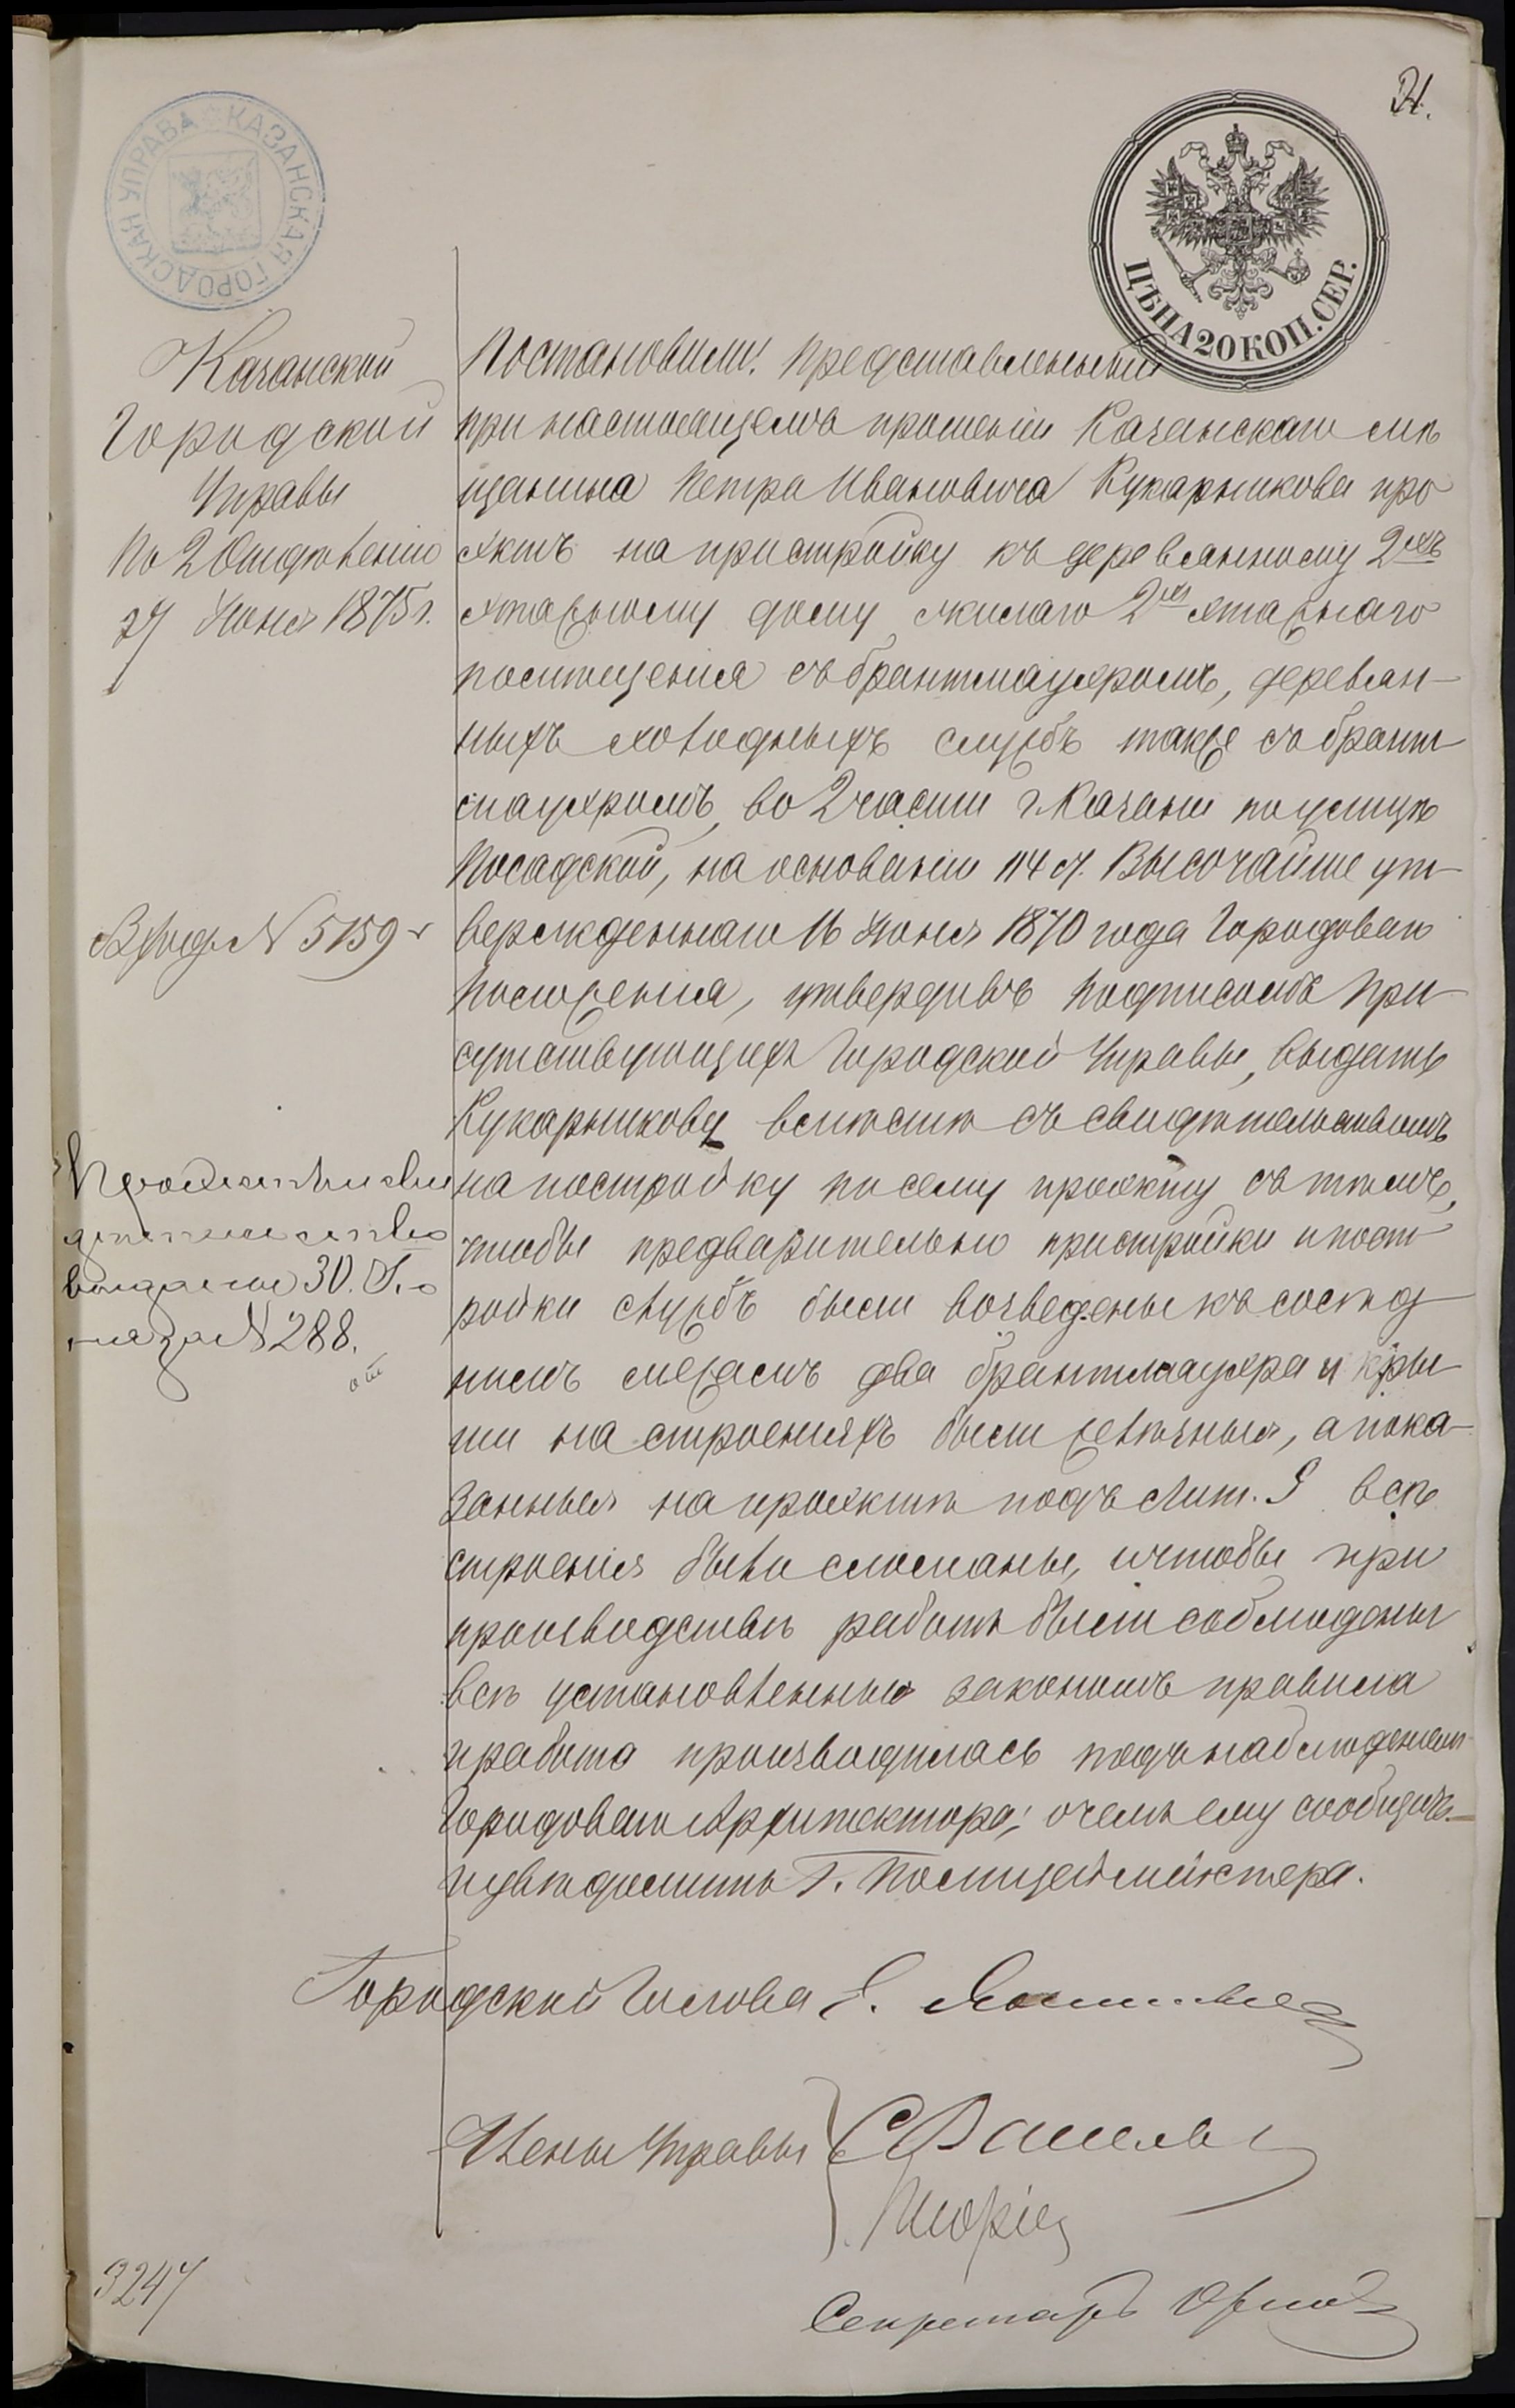 21.
КАЗАНСКАЯ ГОРОДСКАЯ УПРАВА
ЦѢНА 20 КОП. СЕР.
Казанской
Городской
Управы
По 2 Отдѣленію
27 Іюня 1875 г.
Вход. № 5159
Проэктъ и сви
дѣтельство
выданы 30. Ію
ня за № 288.
Постановили: Представленный
при настоящемъ прошеніи Казанскаго мѣ
щанина Петра Ивановича Кукарникова про
эктъ на пристройку къ деревянному 2хъ
этажному дому жилаго 2хъ этажнаго
помѣщенія съ брантмауэромъ, деревян-
ныхъ холодныхъ службъ также съ брант
мауэромъ, во 2 части г. Казани по улицѣ
Посадской, на основаніи 114 ст. Высочайше ут-
вержденнаго 16 Іюня 1870 года Городоваго
Положенія, утвердивъ подписомъ При-
сутствующихъ Городской Управы, выдать
Кукарникову вмѣстѣ съ свидѣтельствомъ
на постройку по сему проэкту съ тѣмъ,
чтобы предварительно пристройки и пост
ройки службъ были возведены къ сосѣд
нимъ межамъ два брантмауэра и кры
ши на строеніяхъ были желѣзныя, а пока-
занныя на проэктѣ подъ лит. Я всѣ
строенія были сломаны, и чтобы при
производствѣ работъ были соблюдены
всѣ установленныя закономъ правила
и работа производилась подъ наблюденіемъ
Городоваго Архитектора; о чемъ ему сообщить
и увѣдомить Г. Полицеймейстера.
Городской Голова Э. Янишевскій
Члены Управы
Секретарь
3247